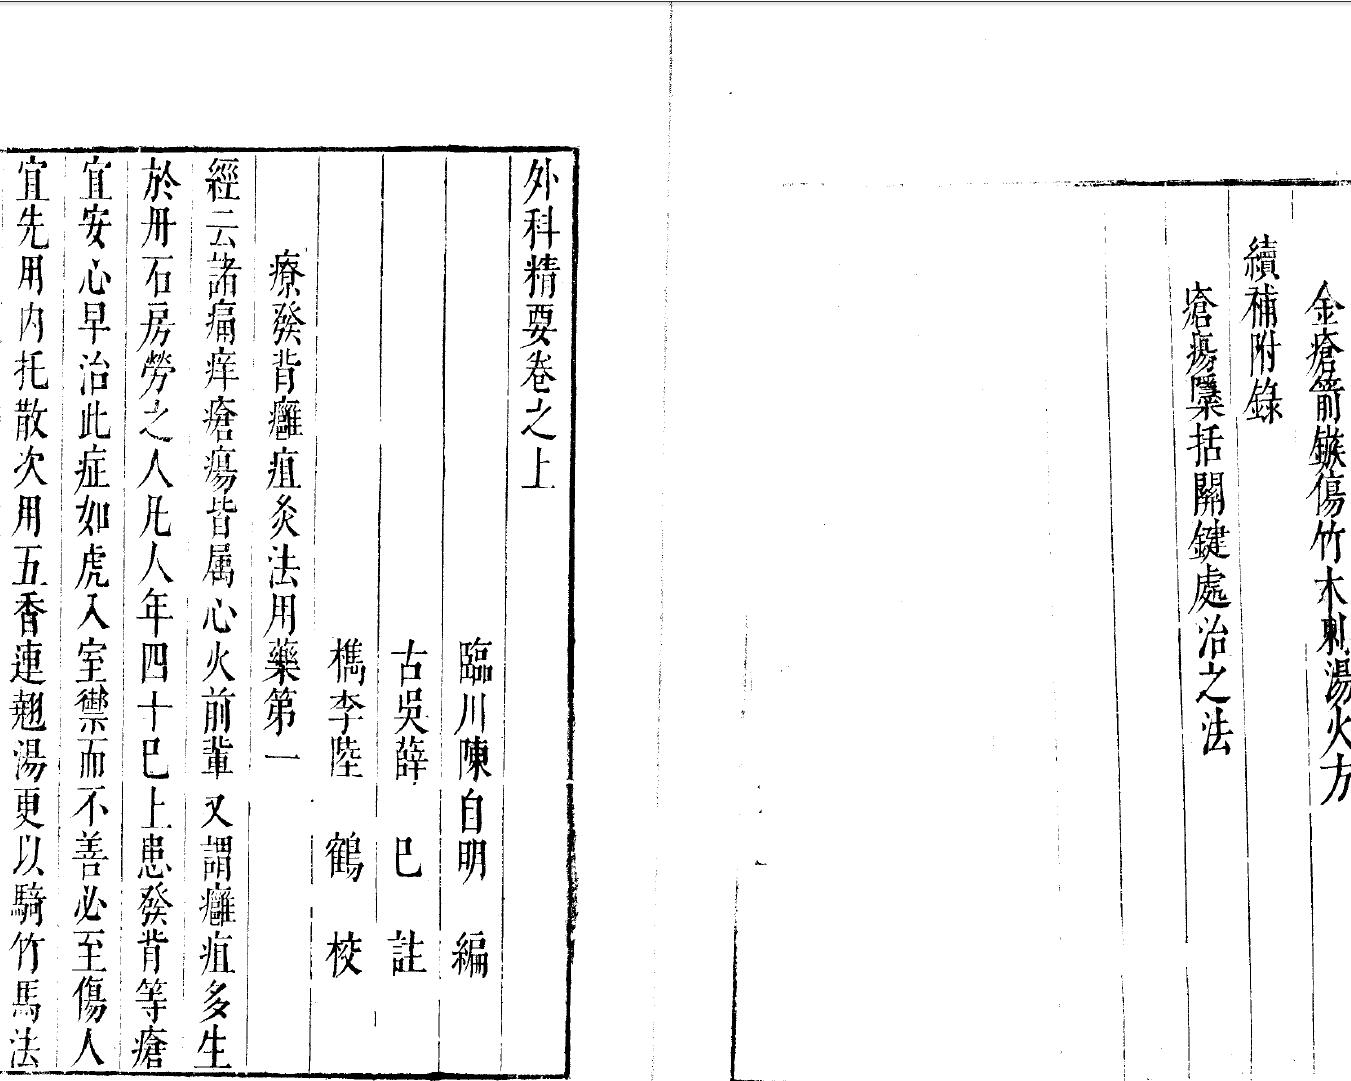 金瘡箭鏃傷竹木刺湯火方
續補附錄
瘡瘍隱括關鍵處治之法
外科精要卷之上
臨川陳自明　編
古吳薛　巳　註
檇李陸　鶴　校
療發背癰疽灸法用藥第一
經云諸痛痒瘡瘍皆属心火前輩又謂癰疽多生
於丹石房勞之人凡人年四十巳上患發背等瘡
宜安心早治此症如虎入室禦而不善必至傷人
宜先用内托散次用五香連翹湯更以騎竹馬法